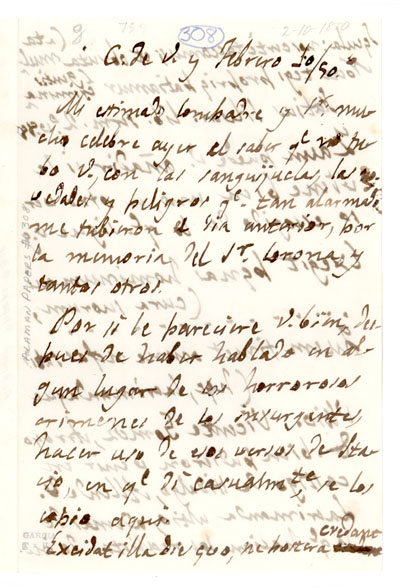 308
2-10-1850
C. de V. y Febrero 10/50.
Mi estimado Compadre y Sr. mu-
cho celebre ayer el saber qe. no hu-
bo V. con las sanguijuelas, las no-
vedades y peligros qe. tan alarmado
me tubieron el dia anterior, por
la memoria del Sr. Corona, y
tantos otros.
Por si le pareciere V. bien, des-
pues de haber hablado en al-
gun lugar de los horrorosos
crimenes de los insurgentes,
hacer uso de esos versos de Sta-
cio, en qe. di casualmte., se los
copio aqui.
Excidat illa dies quo, ne postera credant
ALAMAN PAPERS
308
GARCIA